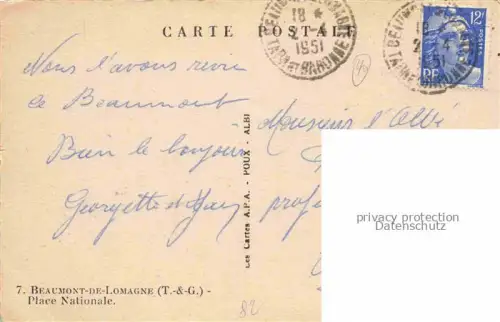 CARTE POSTALE
BEAUMONT-DE-LOMAGNE
18 *
2 - 4
1951
TARN ET GARONNE
12F
RF
Nous l'avons revu
ce Beaumont
Bien le bonjour
Georgette et
Monsieur l'Abbé
profe
Les Cartes A.P.A. - POUX - ALBI
privacy protection
Datenschutz
7. BEAUMONT-DE-LOMAGNE (T.-&-G.) -
Place Nationale.
82